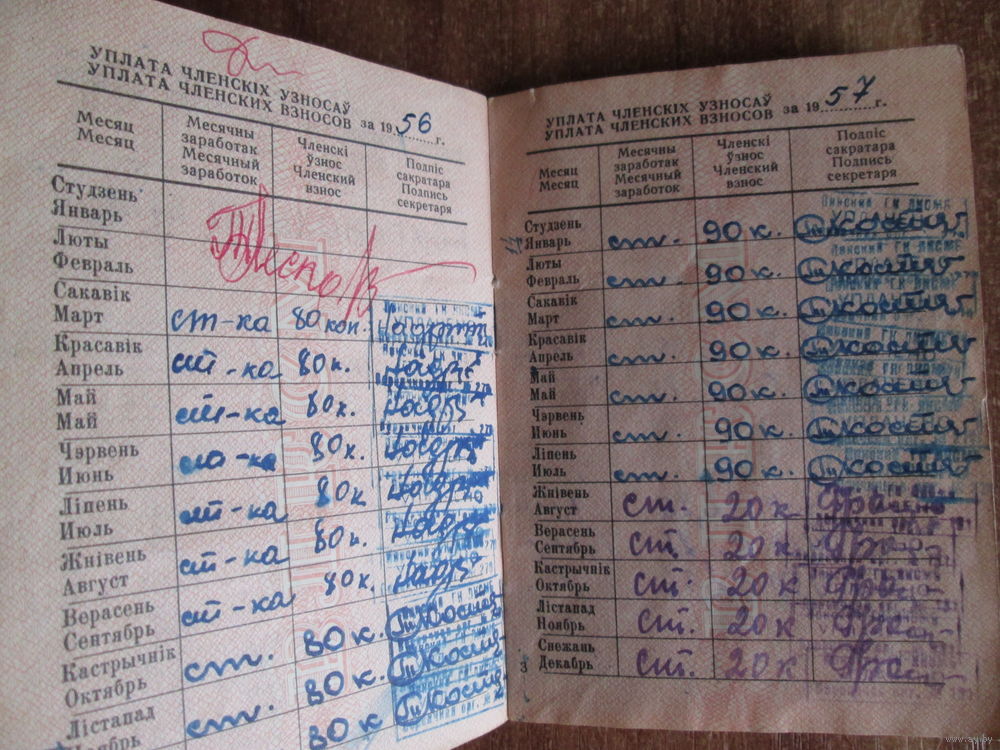 УПЛАТА ЧЛЕНСКІХ УЗНОСАЎ
УПЛАТА ЧЛЕНСКИХ ВЗНОСОВ за 1956 г.
Месяц
Месяц
Месячны
заработак
Месячный
заработок
Членскі
ўзнос
Членский
взнос
Подпіс
сакратара
Подпись
секретаря
Студзень
Январь
Люты
Февраль
Сакавік
Март ст-ка 80 коп.
Красавік
Апрель ст-ка 80 к.
Май
Май ст-ка 80 к.
Чэрвень
Июнь ст-ка 80 к.
Ліпень
Июль ст-ка 80 к
Жнівень
Август ст-ка 80 к.
Верасень
Сентябрь ст-ка 80 к.
Кастрычнік
Октябрь ст. 80 к.
Лістапад
ст. 80 к.
80 к
УПЛАТА ЧЛЕНСКІХ УЗНОСАЎ
УПЛАТА ЧЛЕНСКИХ ВЗНОСОВ за 1957 г.
Месяц
Месяц
Месячны
заработак
Месячный
заработок
Членскі
ўзнос
Членский
взнос
Подпіс
сакратара
Подпись
секретаря
Студзень
Январь ст. 90 к.
Люты
Февраль ст. 90 к.
Сакавік
Март ст. 90 к.
Красавік
Апрель ст. 90 к.
Май
Май ст. 90 к.
Чэрвень
Июнь ст. 90 к.
Ліпень
Июль ст. 90 к.
Жнівень
Август ст. 20 к
Верасень
Сентябрь ст. 20 к
Кастрычнік
Октябрь ст. 20 к
Лістапад
Ноябрь ст. 20 к
Снежань
Декабрь ст. 20 к
3
www.ay.by